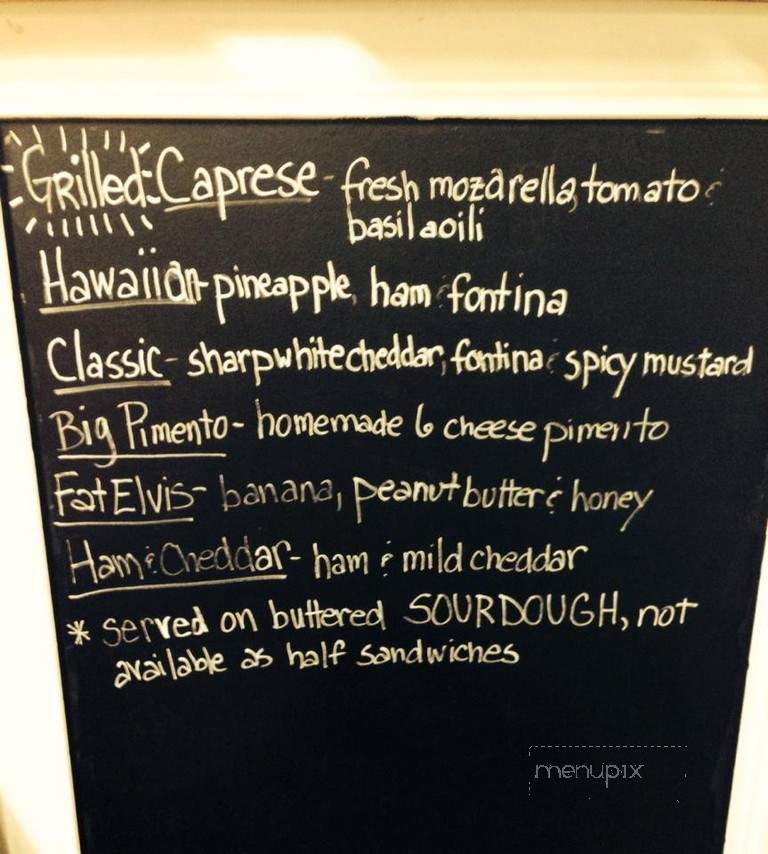 Grilled Caprese - fresh mozarella, tomato &
basil aoili
Hawaiian - pineapple, ham & fontina
Classic - sharp white cheddar, fontina & spicy mustard
Big Pimento - homemade 6 cheese pimento
Fat Elvis - banana, peanut butter & honey
Ham & Cheddar - ham & mild cheddar
* served on buttered SOURDOUGH, not
available as half sandwiches
menupix